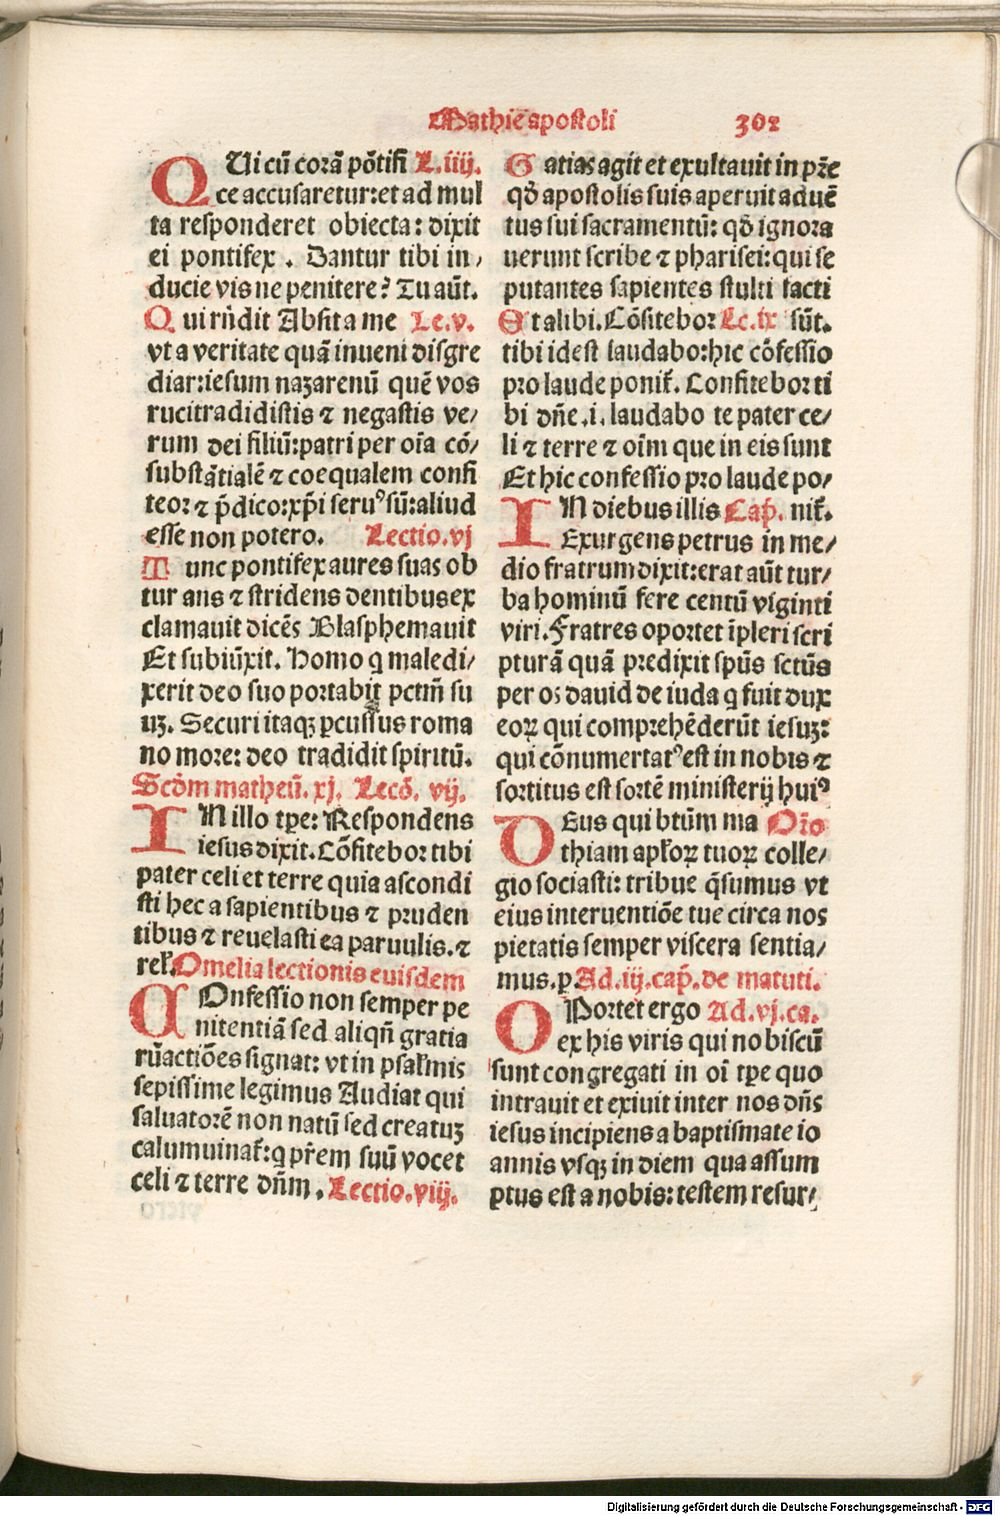 Mathie apostoli 302
QUi cū corā pōtifi L.iiij.
ce accusaretur: et ad mul
ta responderet obiecta: dixit
ei pontifex . Dantur tibi in/
ducie vis ne penitere? Tu aūt.
Qui rn̄dit Absit a me Le.v.
vt a veritate quā inueni disgre
diar: iesum nazarenū quē vos
rucitradidistis ⁊ negastis ve/
rum dei filiū: patri per oīa cō/
substātialē ⁊ coequalem confi
teor ⁊ p̄dico: xp̄i seruꝰ sū: aliud
esse non potero. Lectio.vj
Tunc pontifex aures suas ob
tur ans ⁊ stridens dentibus ex
clamauit dicēs Blasphemauit
Et subiūxit. Homo q maledi/
xerit deo suo portabit pctm̄ su
uꝫ. Securi itaqꝫ ꝑcussus roma
no more: deo tradidit spiritū.
Scd̄m matheū. xj. Lecō. vij.
IN illo tꝑe: Respondens
iesus dixit. Cōfitebor tibi
pater celi et terre quia ascondi
sti hec a sapientibus ⁊ pruden
tibus ⁊ reuelasti ea paruulis. ⁊
rel̄. Omelia lectionis euisdem
COnfessio non semper pe
nitentiā sed aliqn̄ gratia
rū actiōes signat: vt in psal̄mis
sepissime legimus Audiat qui
saluatorē non natū sed creatuꝫ
calumuinat̄: q pr̄em suū vocet
celi ⁊ terre dn̄m . Lectio.viij.
Gatias agit et exultauit in pr̄e
qd̄ apostolis suis aperuit aduē
tus sui sacramentū: qd̄ ignora
uerunt scribe ⁊ pharisei: qui se
putantes sapientes stulti facti
Et alibi. Cōfitebor Lc.ix sūt.
tibi idest laudabo: hic cōfessio
pro laude ponit̄. Confitebor ti
bi dn̄e .i. laudabo te pater ce/
li ⁊ terre ⁊ oīm que in eis sunt
Et hic confessio pro laude po/
IN diebus illis Cap̄. nit̄.
Exurgens petrus in me/
dio fratrum dixit: erat aūt tur/
ba hominū fere centū viginti
viri. Fratres oportet īpleri scri
pturā quā predixit spūs sctūs
per os dauid de iuda q fuit dux
eoꝝ qui comprehēderūt iesuꝫ:
qui cōnumertatꝰ est in nobis ⁊
sortitus est sortē ministerij huiꝰ
DEus qui btūm ma Or̄o
thiam apl̄oꝝ tuoꝝ colle/
gio sociasti: tribue q̄sumus vt
eius interuentiōe tue circa nos
pietatis semper viscera sentia/
mus. p. Ad.iij.cap̄. de matuti.
OPortet ergo Ad.vj.ca.
ex his viris qui nobiscū
sunt congregati in oī tꝑe quo
intrauit et exiuit inter nos dn̄s
iesus incipiens a baptismate io
annis vsqꝫ in diem qua assum
ptus est a nobis: testem resur/
Digitalisierung gefördert durch die Deutsche Forschungsgemeinschaft - DFG